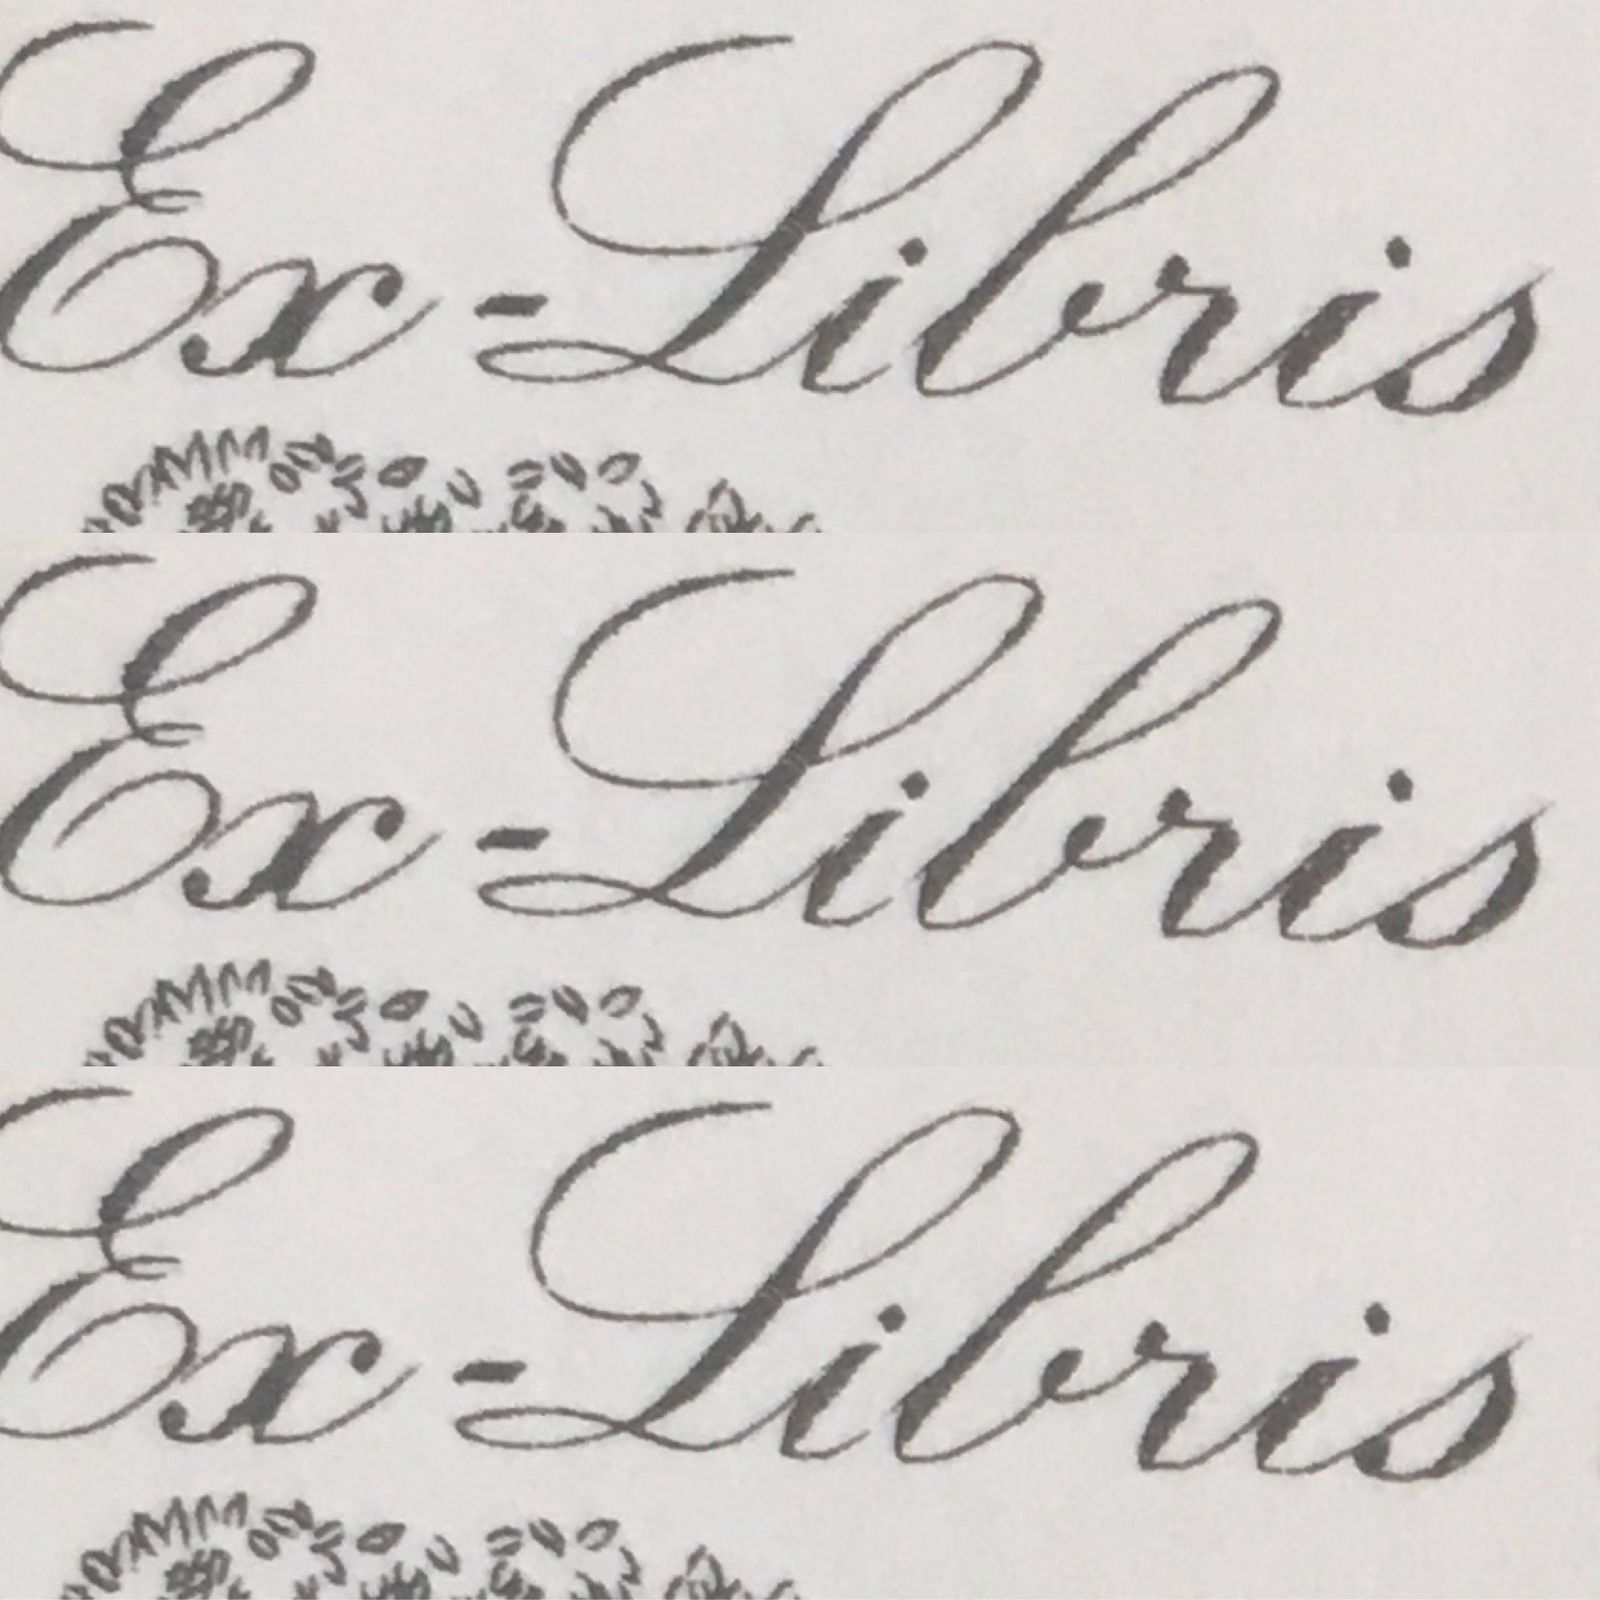 Ex-Libris
Ex-Libris
Ex-Libris